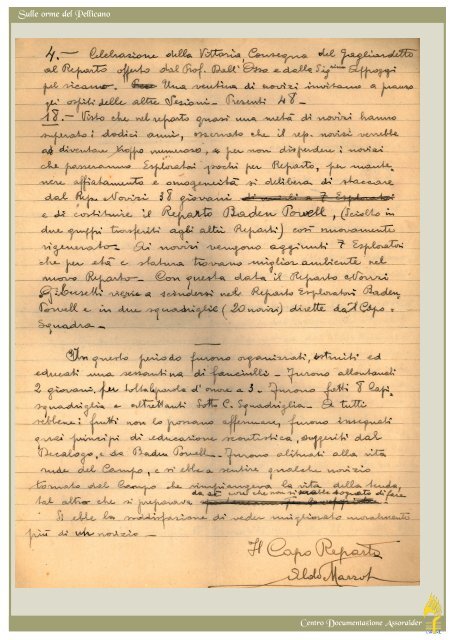 Sulle orme del Pellicano
4.— Celebrazione della Vittoria, Consegna del Gagliardetto
al Reparto offerto dal Prof. Dall'Osso e dalla Sig.ina
pel ricamo. Una ventina di novizi invitarono a pranzo
gli ospiti delle altre Sezioni — Presenti 48 —
18.— Visto che nel reparto quasi una metà di novizi hanno
superato i dodici anni, osservato che il rep. novizi verrebbe
a diventare troppo numeroso, per non disperdere i novizi
che passeranno Esploratori pochi per Reparto, per mante-
nere affiatamento e omogeneità si delibera di staccare
dal Rep. Novizi 38 giovani
e di costituire il Reparto Baden Powell, (sciolto in
due gruppi trasferiti agli altri Reparti) così nuovamente
rigenerato — Ai novizi vengono aggiunti 7 Esploratori
che per età e statura trovano miglior ambiente nel
nuovo Reparto — Con questa data il Reparto Novizi
viene a scindersi nel Reparto Esploratori Baden-
Powell e in due squadriglie (20 novizi) dirette dal Capo-
Squadra —
In questo periodo furono organizzati, istruiti ed
educati una sessantina di fanciulli — Furono allontanati
2 giovani, per d'onore a 3 — Furono fatti 8 Capi
squadriglia e altrettanti Sotto C. Squadriglia — A tutti
sebbene i frutti non lo possano affermare, furono insegnati
quei principi di educazione scoutistica, suggeriti dal
Decalogo, e da Baden Powell — Furono abituati alla vita
rude del Campo, e si ebbe a sentire qualche novizio
tornato dal Campo che rimpiangeva la vita della tenda,
tal altro che si preparava da sè cose che non si sarebbe sognato di fare
Si ebbe la soddisfazione di veder migliorato moralmente
più di un novizio —
Il Capo Reparto
Aldo
Centro Documentazione Assoraider